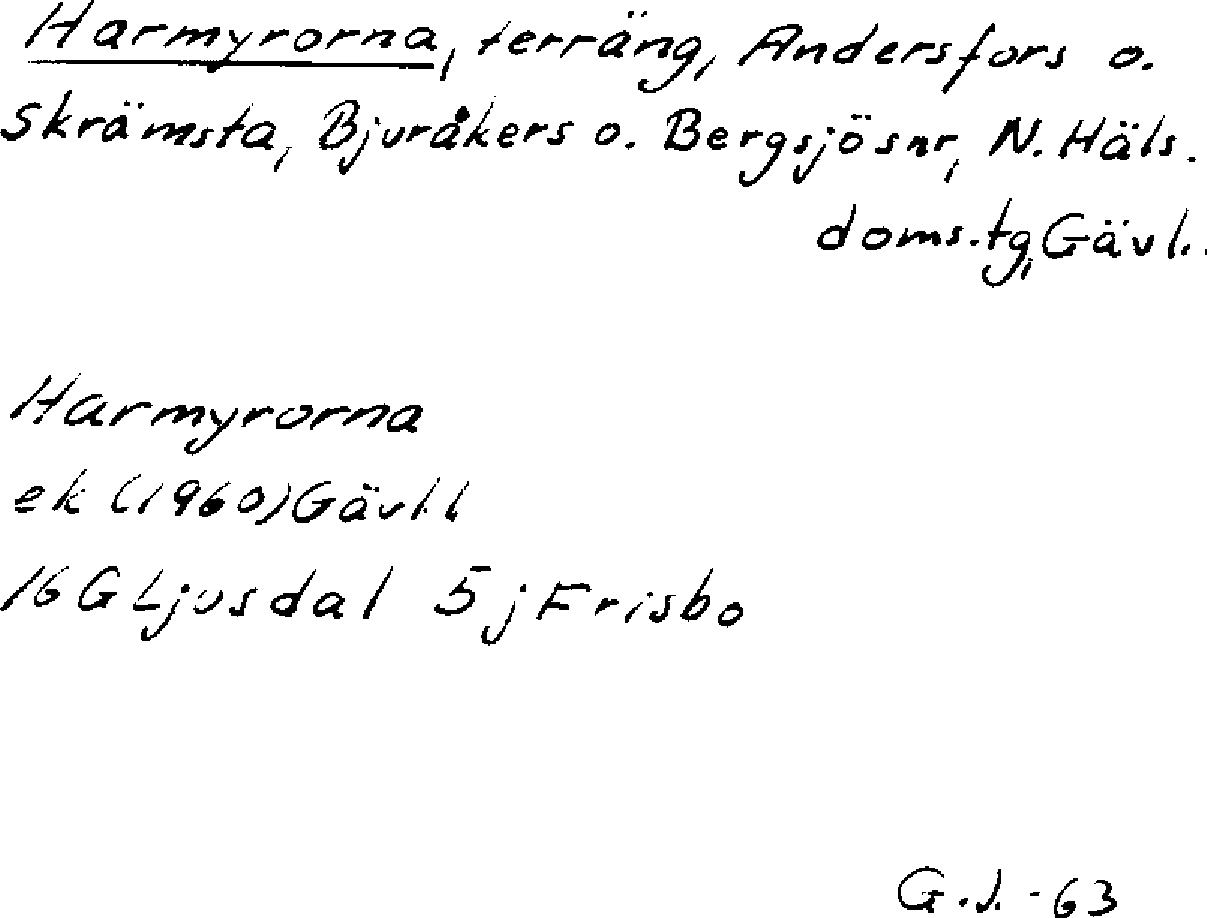 Harmyrorna, terräng, Andersfors o.
Skrämsta, Bjuråkers o. Bergsjösnr, N. Häls.
doms.tg, Gävl.
Harmyrorna
ek (1960) Gävl.l
16 G Ljusdal 5 j Frisbo
G.J. -63